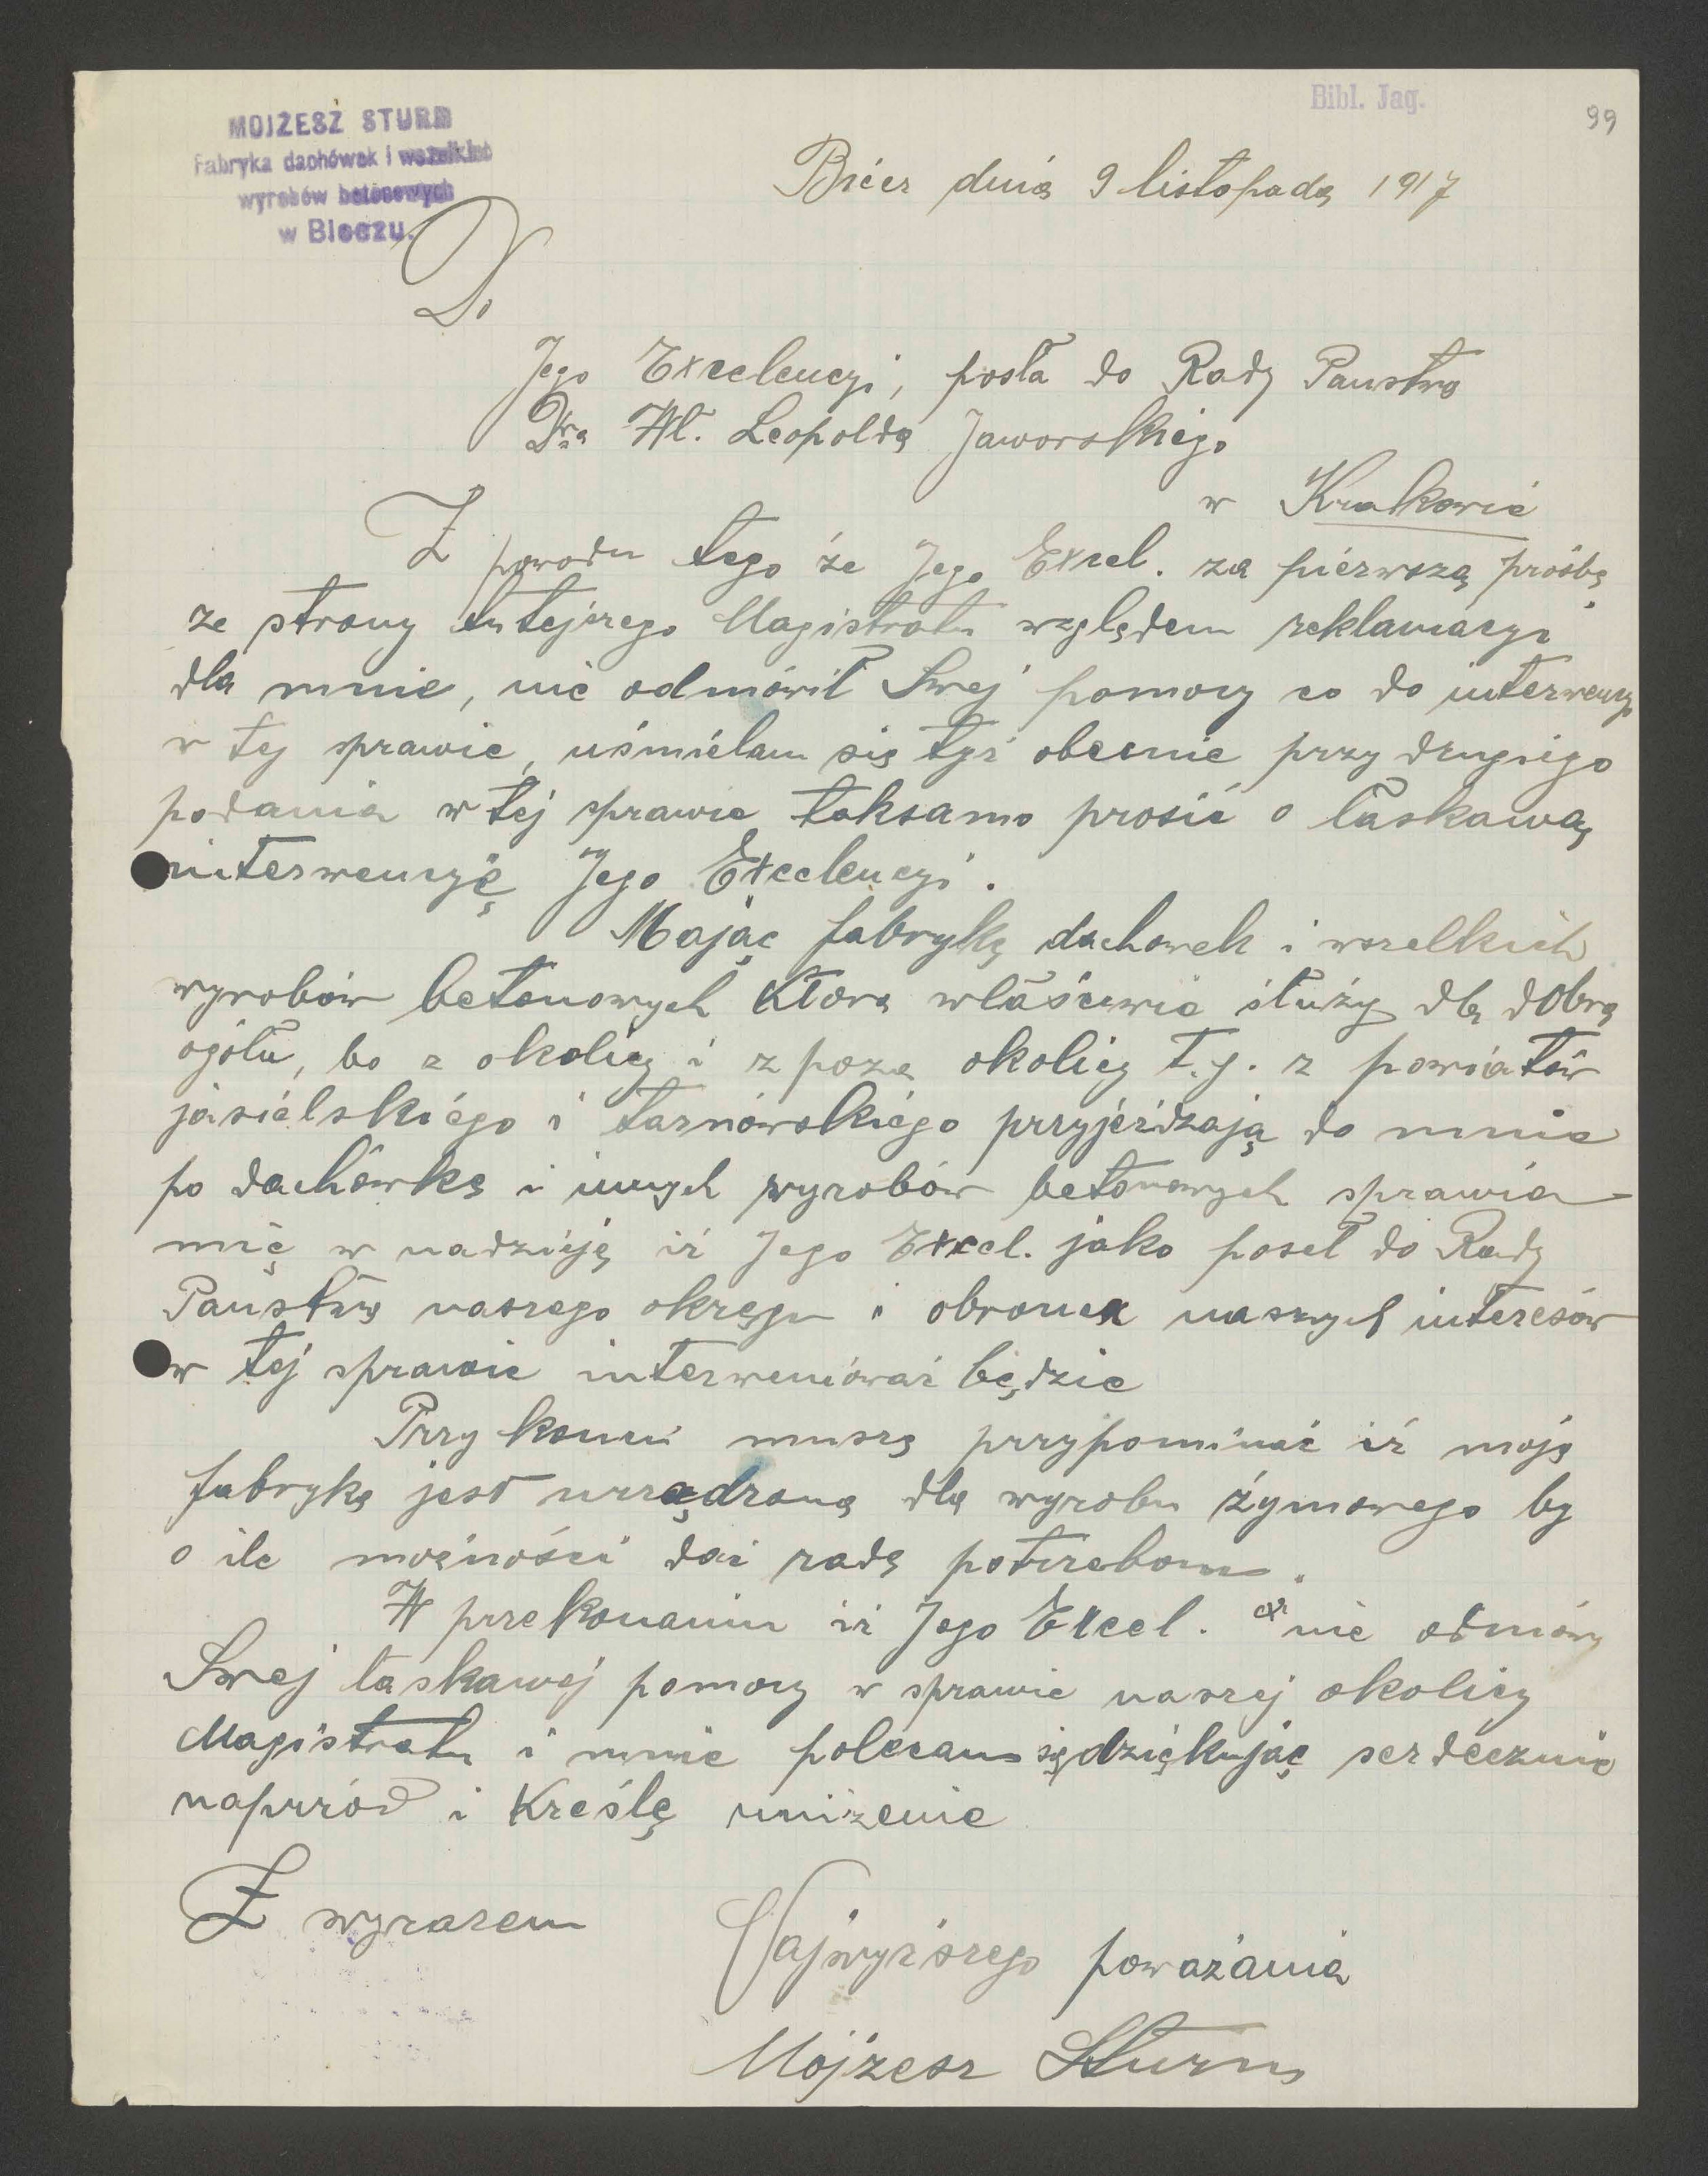 Bibl. Jag.
99
MOJŻESZ STURM
Fabryka dachówek i wszelkich
wyrobów betonowych
w Bieczu.
Biecz dnia 9 listopada 1917
Do
Jego Excelencyi, posła do Rady Państwa
Dra Wł. Leopolda Jaworskiego
w Krakowie
Z powodu tego że Jego Excel. za pierwszą prośbą
ze strony tutejszego Magistratu względem reklamacyi
dla mnie, nie odmówił Swej pomocy co do interwencyi
w tej sprawie, uśmielam się tyż obecnie przy drugiego
podania w tej sprawie taksamo prosić o łaskawą
interwencyję Jego Excelencyi.
Mając fabrykę dachowek i wszelkich
wyrobów betonowych która właściwie służy dla dobra
ogółu, bo z okolicy i z poza okolicy t.j. z powiatów
jasielskiego i tarnówskiego przyjeżdzają do mnie
po dachówkę i innych wyrobów betonowych sprawia
mię w nadzieję iż Jego Excel. jako poseł do Rady
Państwa naszego okręgu i obronca naszych interesów
w tej sprawie interweniować będzie
Przy koncu muszę przypominać iż moja
fabryka jest urządzona dla wyrobu żymowego by
o ile możności dać radę potrzebom.
W przekonaniu iż Jego Excel. nie odmówy
Swej łaskawej pomocy w sprawie naszej okolicy
Magistratu i mnie polecam się dziękując serdecznie
naprzód i Kreślę uniżenie
Z wyrazem
Najwyższego poważania
Mojżesz Sturm